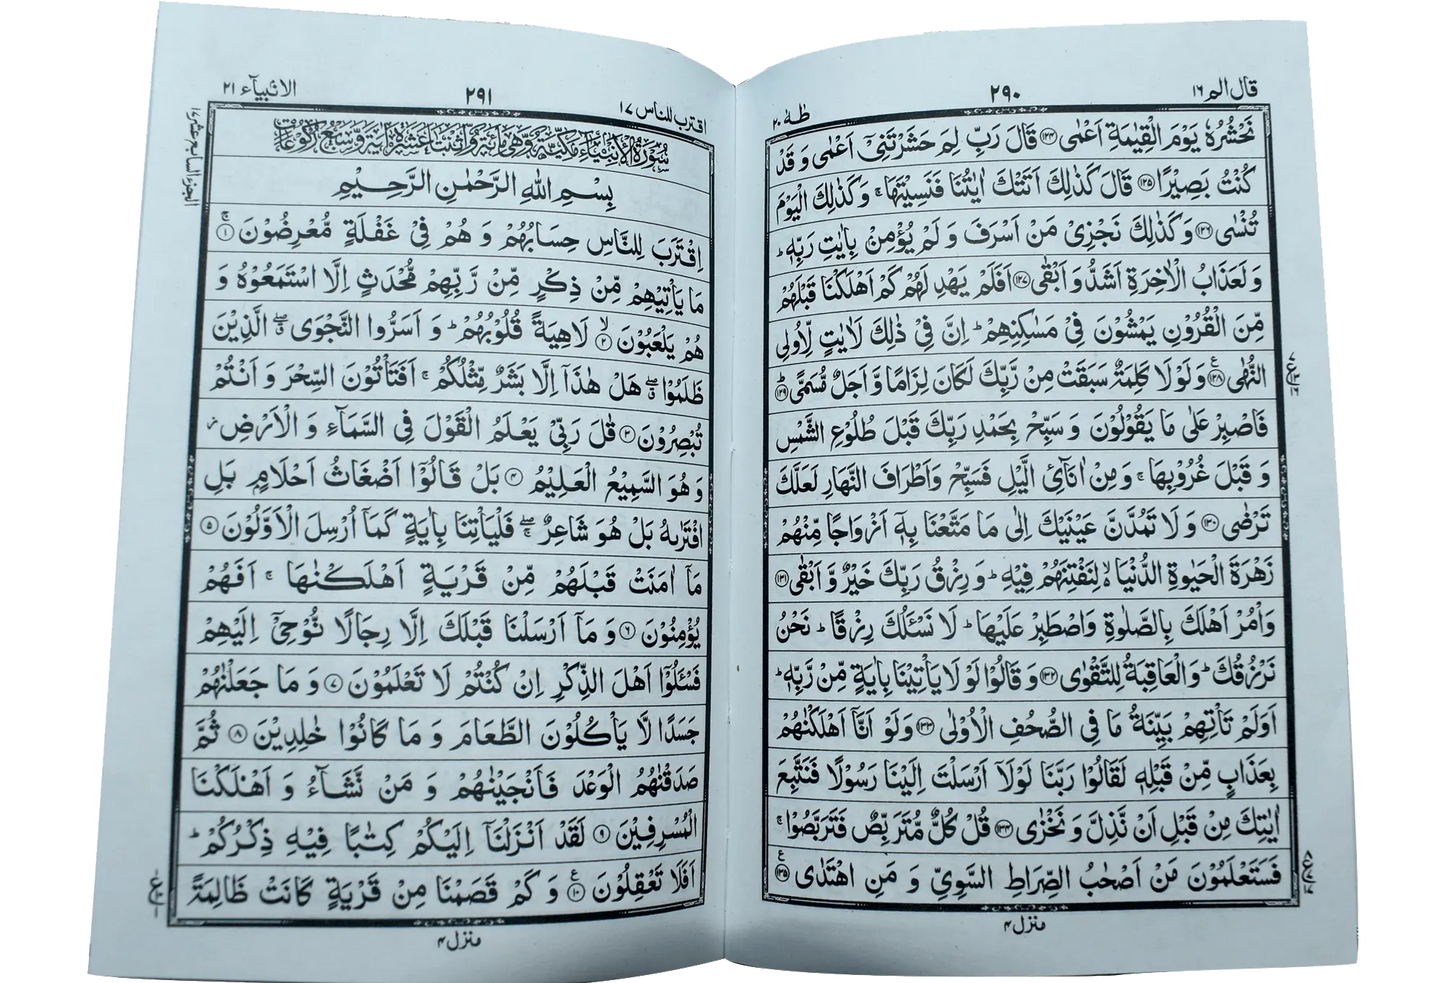 قال الم ١٦
٢٩٠
طٰهٰ ٢٠
نَحْشُرُهٗ يَوْمَ الْقِيٰمَةِ اَعْمٰى ﴿١٢٤﴾ قَالَ رَبِّ لِمَ حَشَرْتَنِىْٓ اَعْمٰى وَ قَدْ
كُنْتُ بَصِيْرًا ﴿١٢٥﴾ قَالَ كَذٰلِكَ اَتَتْكَ اٰيٰتُنَا فَنَسِيْتَهَا ۚ وَكَذٰلِكَ الْيَوْمَ
تُنْسٰى ﴿١٢٦﴾ وَكَذٰلِكَ نَجْزِىْ مَنْ اَسْرَفَ وَ لَمْ يُؤْمِنْۢ بِاٰيٰتِ رَبِّهٖ ؕ
وَ لَعَذَابُ الْاٰخِرَةِ اَشَدُّ وَ اَبْقٰى ﴿١٢٧﴾ اَفَلَمْ يَهْدِ لَهُمْ كَمْ اَهْلَكْنَا قَبْلَهُمْ
مِّنَ الْقُرُوْنِ يَمْشُوْنَ فِىْ مَسٰكِنِهِمْ ؕ اِنَّ فِىْ ذٰلِكَ لَاٰيٰتٍ لِّاُولِى
النُّهٰى ﴿١٢٨﴾ وَلَوْ لَا كَلِمَةٌ سَبَقَتْ مِنْ رَّبِّكَ لَكَانَ لِزَامًا وَّ اَجَلٌ مُّسَمًّى ﴿١٢٩﴾
فَاصْبِرْ عَلٰى مَا يَقُوْلُوْنَ وَ سَبِّحْ بِحَمْدِ رَبِّكَ قَبْلَ طُلُوْعِ الشَّمْسِ
وَ قَبْلَ غُرُوْبِهَا ۚ وَ مِنْ اٰنَآئِ الَّيْلِ فَسَبِّحْ وَاَطْرَافَ النَّهَارِ لَعَلَّكَ
تَرْضٰى ﴿١٣٠﴾ وَ لَا تَمُدَّنَّ عَيْنَيْكَ اِلٰى مَا مَتَّعْنَا بِهٖٓ اَزْوَاجًا مِّنْهُمْ
زَهْرَةَ الْحَيٰوةِ الدُّنْيَا ۙ لِنَفْتِنَهُمْ فِيْهِ ؕ وَ رِزْقُ رَبِّكَ خَيْرٌ وَّ اَبْقٰى ﴿١٣١﴾
وَاْمُرْ اَهْلَكَ بِالصَّلٰوةِ وَاصْطَبِرْ عَلَيْهَا ؕ لَا نَسْـَٔلُكَ رِزْقًا ؕ نَحْنُ
نَرْزُقُكَ ؕ وَالْعَاقِبَةُ لِلتَّقْوٰى ﴿١٣٢﴾ وَ قَالُوْا لَوْ لَا يَاْتِيْنَا بِاٰيَةٍ مِّنْ رَّبِّهٖ ؕ
اَوَلَمْ تَاْتِهِمْ بَيِّنَةُ مَا فِى الصُّحُفِ الْاُوْلٰى ﴿١٣٣﴾ وَلَوْ اَنَّآ اَهْلَكْنٰهُمْ
بِعَذَابٍ مِّنْ قَبْلِهٖ لَقَالُوْا رَبَّنَا لَوْلَآ اَرْسَلْتَ اِلَيْنَا رَسُوْلًا فَنَتَّبِعَ
اٰيٰتِكَ مِنْ قَبْلِ اَنْ نَّذِلَّ وَ نَخْزٰى ﴿١٣٤﴾ قُلْ كُلٌّ مُّتَرَبِّصٌ فَتَرَبَّصُوْا ۚ
فَسَتَعْلَمُوْنَ مَنْ اَصْحٰبُ الصِّرَاطِ السَّوِىِّ وَ مَنِ اهْتَدٰى ﴿١٣٥﴾
منزل ۴
اقترب للناس ١٧
٢٩١
الانبيآء ٢١
سُوْرَةُ الْاَنْبِيَآءِ مَكِّيَّةٌ وَّهِىَ مِائَةٌ وَّاثْنَتَا عَشْرَةَ اٰيَةً وَّسَبْعُ رُكُوْعَاتٍ
بِسْمِ اللّٰهِ الرَّحْمٰنِ الرَّحِيْمِ
اِقْتَرَبَ لِلنَّاسِ حِسَابُهُمْ وَ هُمْ فِىْ غَفْلَةٍ مُّعْرِضُوْنَ ۚ﴿١﴾
مَا يَاْتِيْهِمْ مِّنْ ذِكْرٍ مِّنْ رَّبِّهِمْ مُّحْدَثٍ اِلَّا اسْتَمَعُوْهُ وَ
هُمْ يَلْعَبُوْنَ ۙ﴿٢﴾ لَاهِيَةً قُلُوْبُهُمْ ؕ وَ اَسَرُّوا النَّجْوَى ۖ الَّذِيْنَ
ظَلَمُوْا ۖ هَلْ هٰذَآ اِلَّا بَشَرٌ مِّثْلُكُمْ ۚ اَفَتَاْتُوْنَ السِّحْرَ وَ اَنْتُمْ
تُبْصِرُوْنَ ﴿٣﴾ قٰلَ رَبِّىْ يَعْلَمُ الْقَوْلَ فِى السَّمَآءِ وَ الْاَرْضِ ز
وَ هُوَ السَّمِيْعُ الْعَلِيْمُ ﴿٤﴾ بَلْ قَالُوْٓا اَضْغَاثُ اَحْلَامٍۭ بَلِ
افْتَرٰىهُ بَلْ هُوَ شَاعِرٌ ۖۚ فَلْيَاْتِنَا بِاٰيَةٍ كَمَآ اُرْسِلَ الْاَوَّلُوْنَ ﴿٥﴾
مَآ اٰمَنَتْ قَبْلَهُمْ مِّنْ قَرْيَةٍ اَهْلَكْنٰهَا ۚ اَفَهُمْ
يُؤْمِنُوْنَ ﴿٦﴾ وَ مَآ اَرْسَلْنَا قَبْلَكَ اِلَّا رِجَالًا نُّوْحِىْٓ اِلَيْهِمْ
فَسْـَٔلُوْٓا اَهْلَ الذِّكْرِ اِنْ كُنْتُمْ لَا تَعْلَمُوْنَ ﴿٧﴾ وَ مَا جَعَلْنٰهُمْ
جَسَدًا لَّا يَاْكُلُوْنَ الطَّعَامَ وَ مَا كَانُوْا خٰلِدِيْنَ ﴿٨﴾ ثُمَّ
صَدَقْنٰهُمُ الْوَعْدَ فَاَنْجَيْنٰهُمْ وَ مَنْ نَّشَآءُ وَ اَهْلَكْنَا
الْمُسْرِفِيْنَ ﴿٩﴾ لَقَدْ اَنْزَلْنَآ اِلَيْكُمْ كِتٰبًا فِيْهِ ذِكْرُكُمْ ؕ
اَفَلَا تَعْقِلُوْنَ ﴿١٠﴾ وَ كَمْ قَصَمْنَا مِنْ قَرْيَةٍ كَانَتْ ظَالِمَةً
منزل ۴
الجزء السابع عشر ١٧